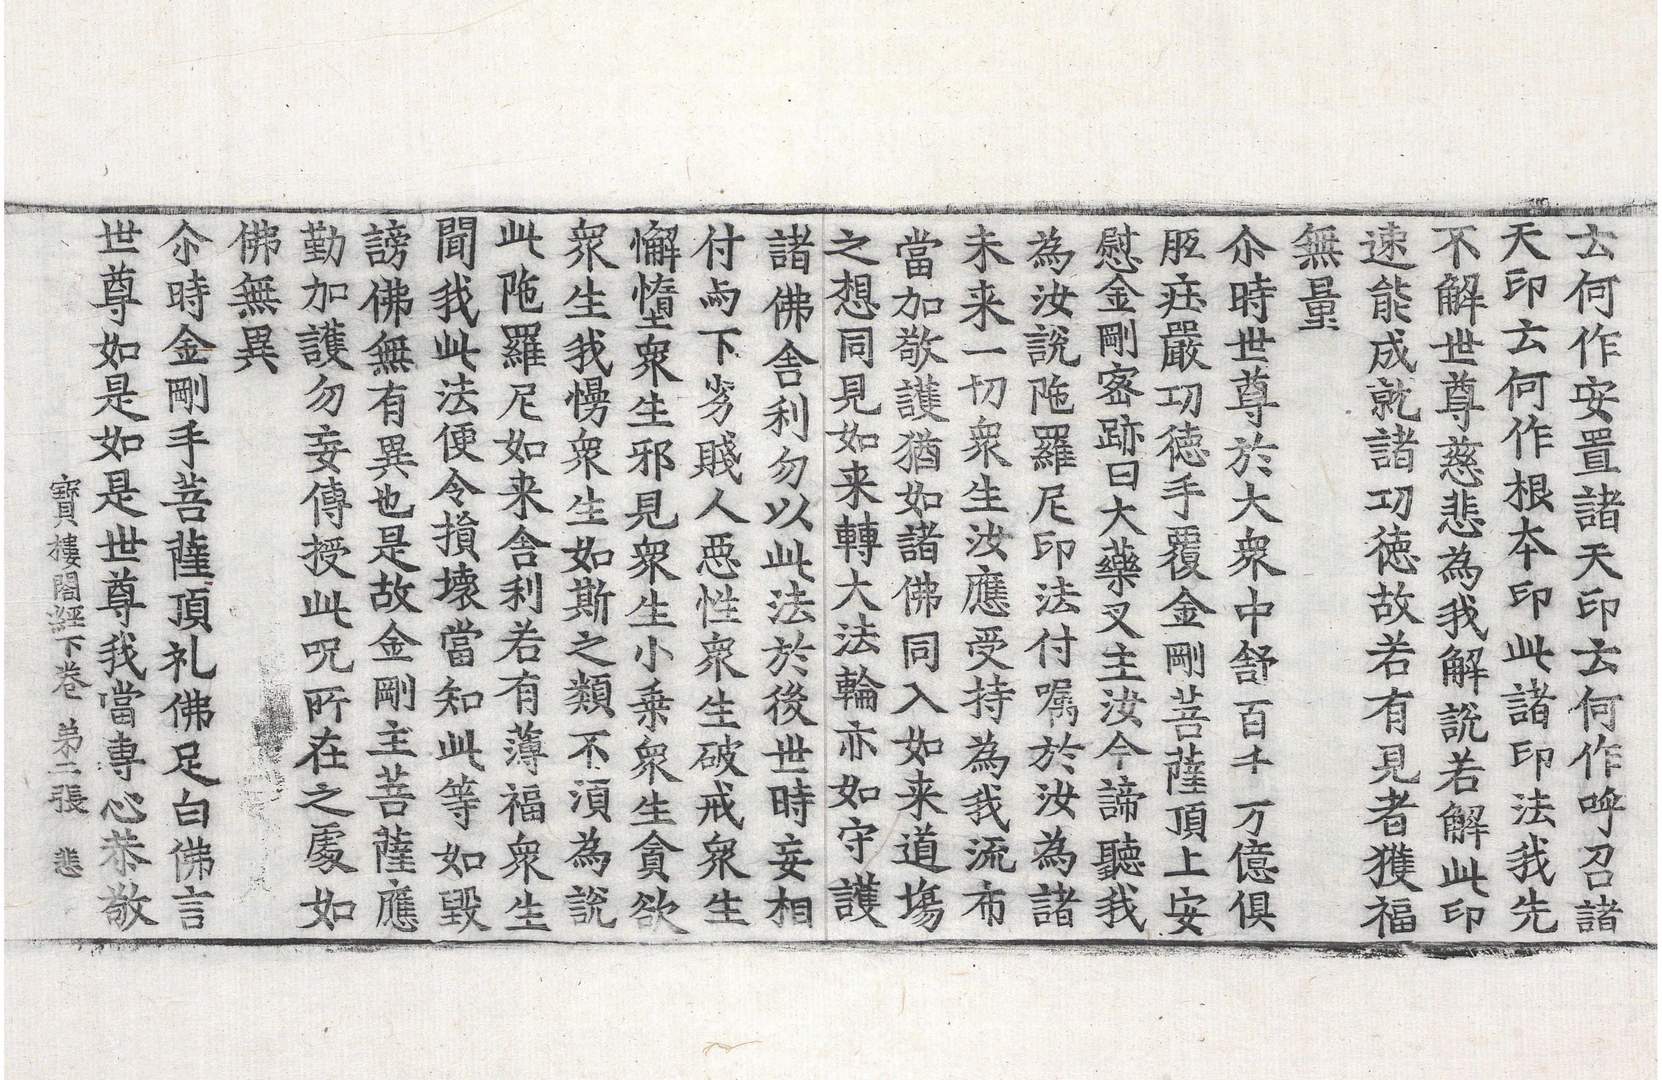 去何作安置諸天印去何作呼召諸
天印去何作根夲印此諸印法我先
不解世尊慈悲為我解說若解此印
速能成就諸功徳故若有見者獲福
無量
尒時世尊於大衆中舒百千万億俱
胝庄嚴功徳手覆金剛菩薩頂上安
慰金剛宻跡曰大藥叉主汝今諦聽我
為汝說陁羅尼印法付嘱於汝為諸
未来一切衆生汝應受持為我流布
當加敬護猶如諸佛同入如来道場
之想同見如来轉大法輪亦如守護
諸佛舎利勿以此法於後世時妄相
付与下劣賤人惡性衆生破戒衆生
懈惰衆生邪見衆生小乗衆生貪欲
衆生我慢衆生如斯之類不湏為說
此陁羅尼如来舎利若有薄福衆生
聞我此法便令損壞當知此等如毀
謗佛無有異也是故金剛主菩薩應
勤加護勿妄傳授此呪所在之處如
佛無異
尒時金剛手菩薩頂礼佛足白佛言
世尊如是如是世尊我當專心恭敬
寶樓閣經下卷 第二張 悲